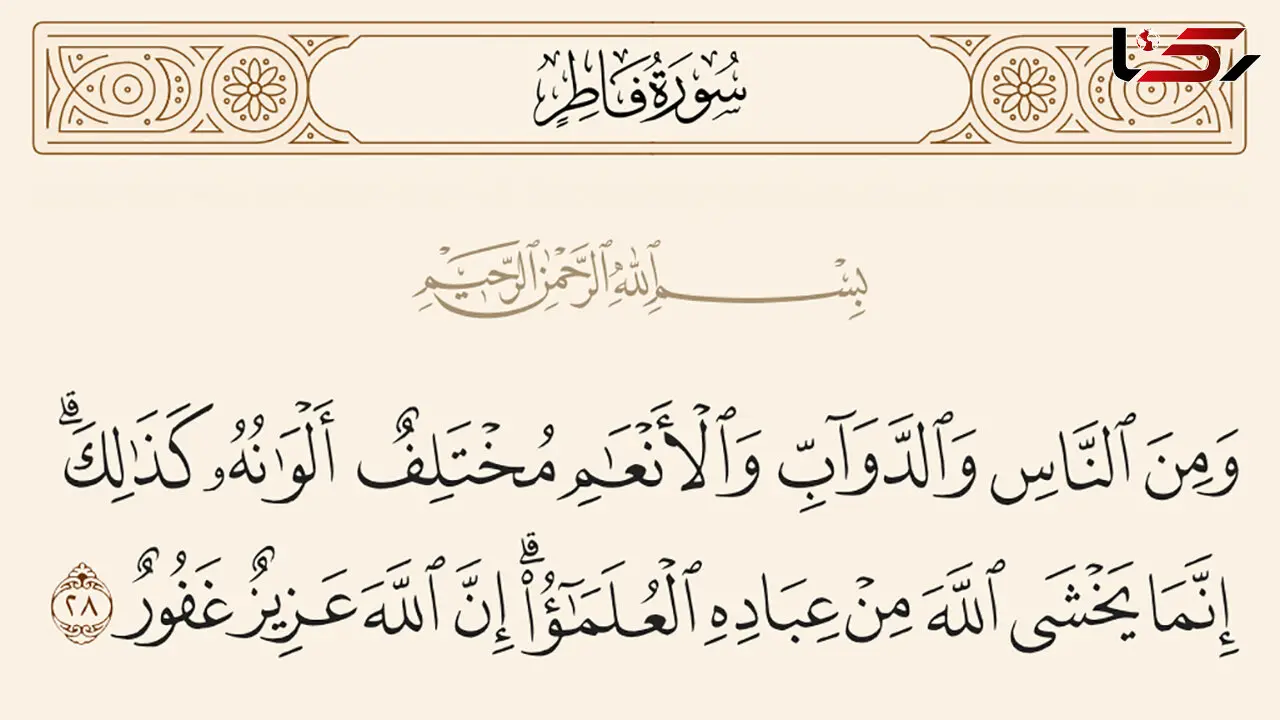 رکنا
سُورَةُ فَاطِرٍ
بِسْمِ ٱللَّهِ ٱلرَّحْمَٰنِ ٱلرَّحِيمِ
وَمِنَ ٱلنَّاسِ وَٱلدَّوَآبِّ وَٱلْأَنْعَٰمِ مُخْتَلِفٌ أَلْوَٰنُهُۥ كَذَٰلِكَۗ
إِنَّمَا يَخْشَى ٱللَّهَ مِنْ عِبَادِهِ ٱلْعُلَمَٰٓؤُا۟ۗ إِنَّ ٱللَّهَ عَزِيزٌ غَفُورٌ ٢٨